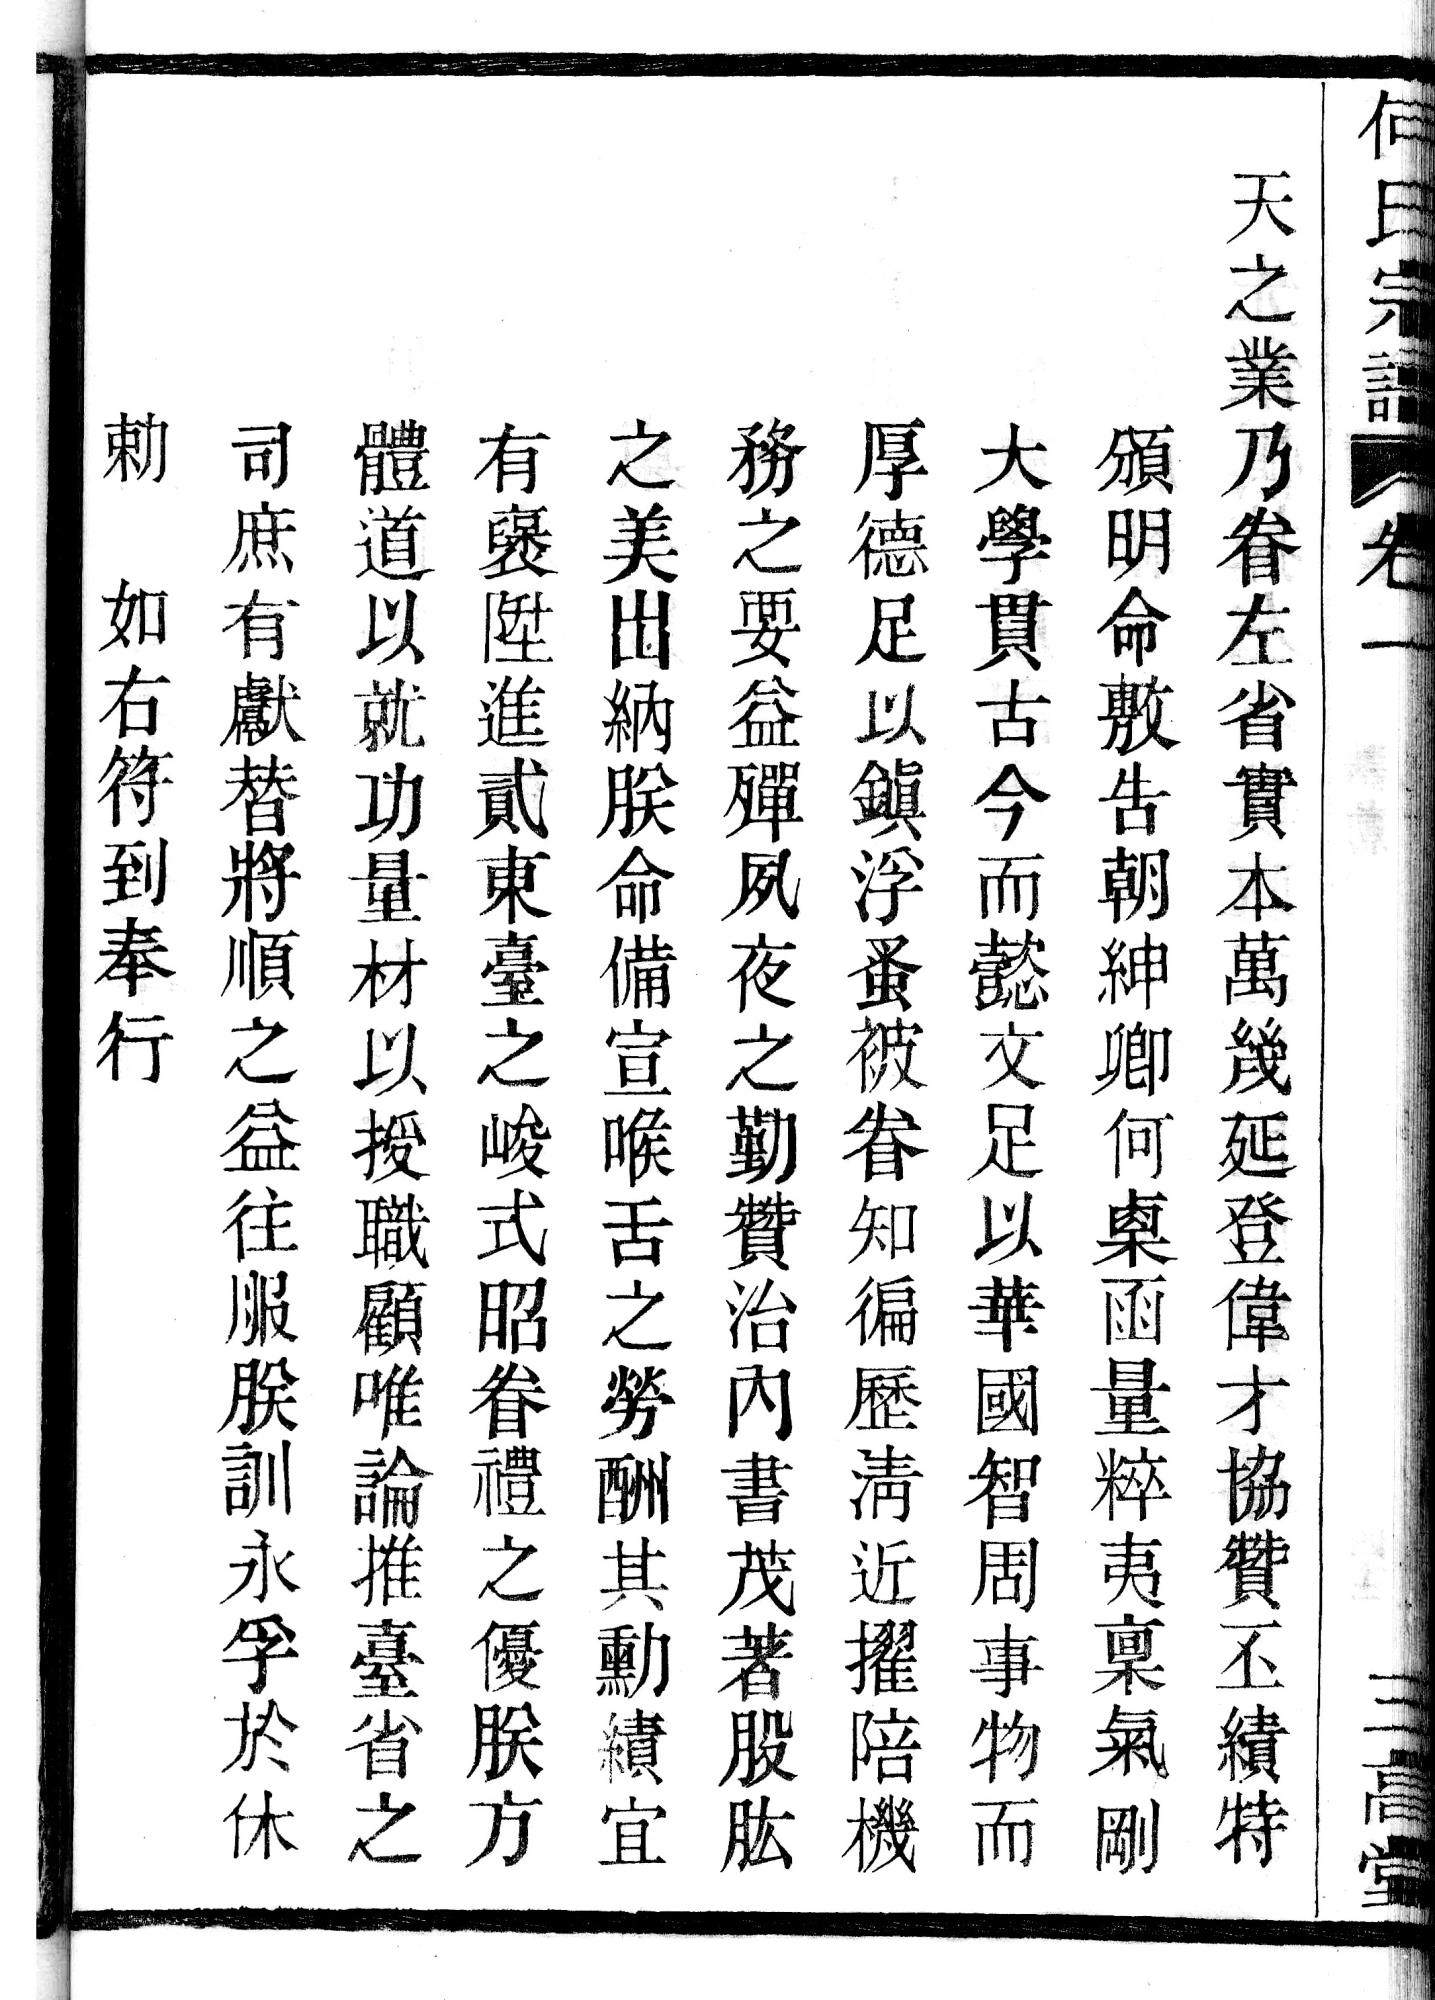 何氏宗譜 卷一 三高堂
天之業乃眷左省實本萬幾延登偉才協贊丕績特
頒明命敷告朝紳卿何㮚函量粹夷稟氣剛
大學貫古今而懿文足以華國智周事物而
厚德足以鎭浮蚤被眷知徧歷淸近擢陪機
務之要益殫夙夜之勤贊治內書茂著股肱
之美出納朕命備宣喉舌之勞酬其勳績宜
有襃陞進貳東臺之峻式昭眷禮之優朕方
體道以就功量材以授職顧唯論推臺省之
司庶有獻替將順之益往服朕訓永孚於休
勅 如右符到奉行